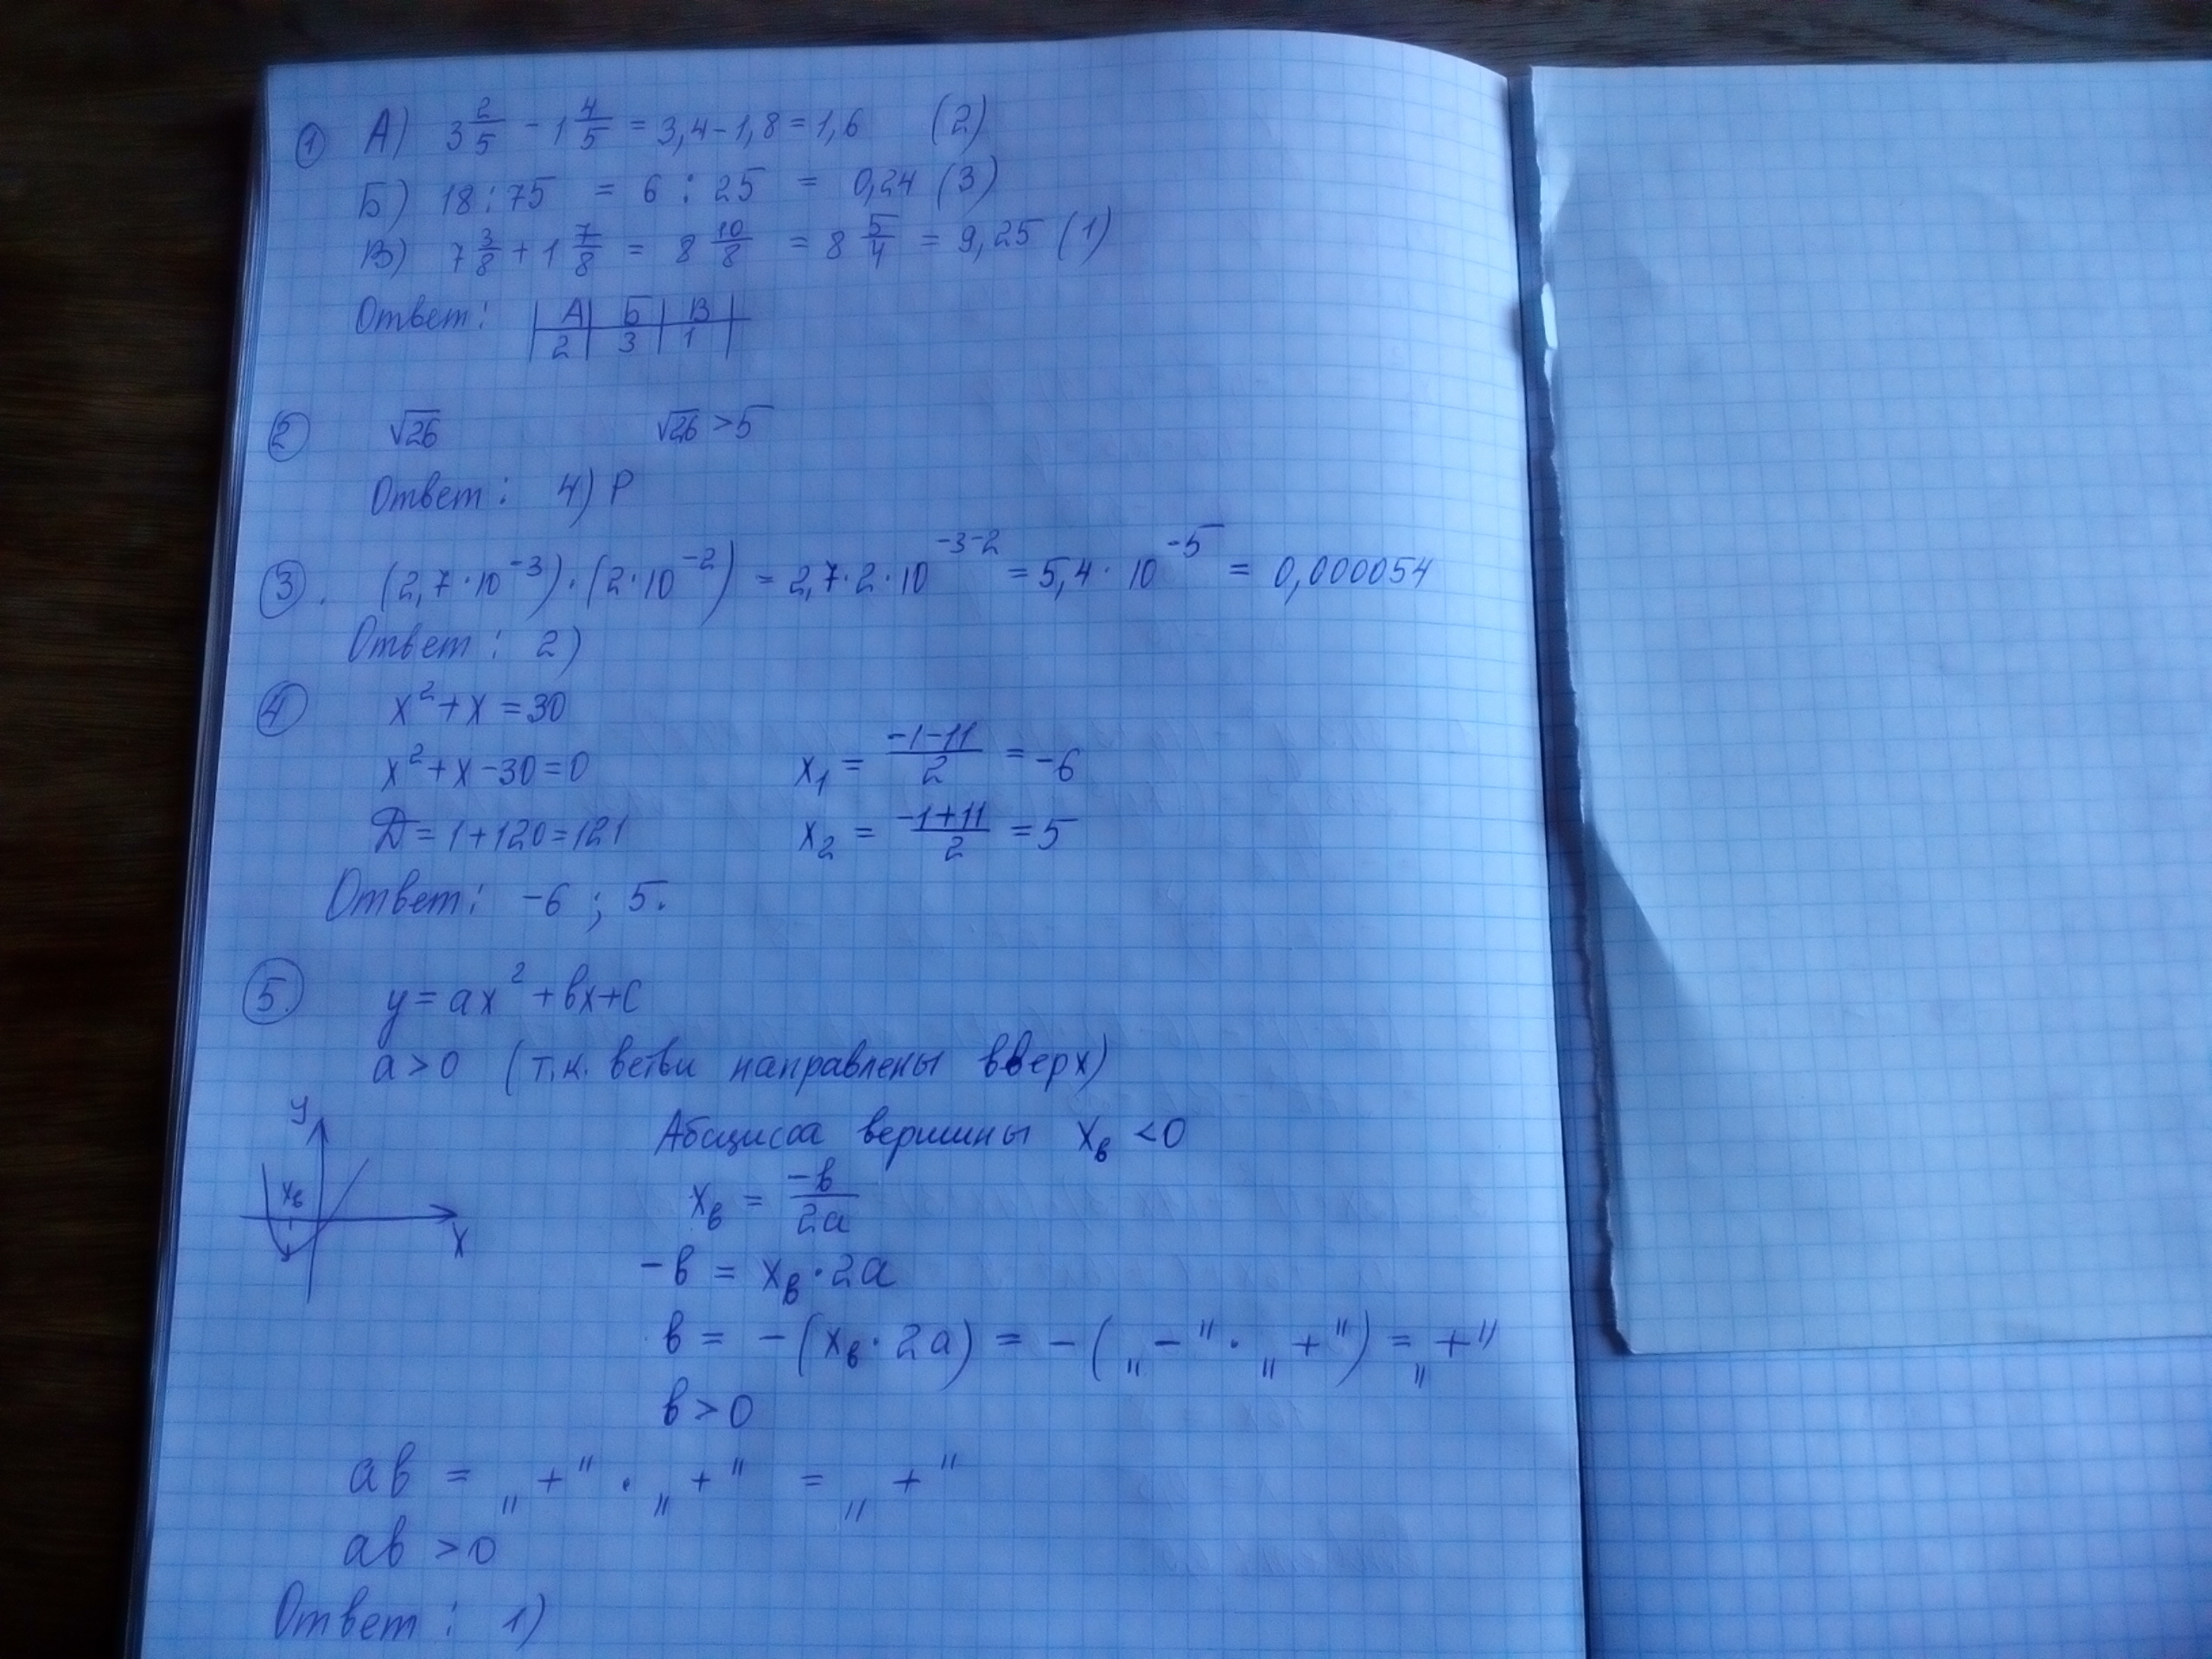 ① А) 3 2/5 - 1 4/5 = 3,4 - 1,8 = 1,6 (2)
Б) 18 : 75 = 6 : 25 = 0,24 (3)
В) 7 3/8 + 1 7/8 = 8 10/8 = 8 5/4 = 9,25 (1)
Ответ: | А | Б | В |
| 2 | 3 | 1 |
② √26 √26 > 5
Ответ: 4) P
③. (2,7·10⁻³)·(2·10⁻²) = 2,7·2·10⁻³⁻² = 5,4·10⁻⁵ = 0,000054
Ответ: 2)
④ x² + x = 30
x² + x - 30 = 0 x₁ = (-1-11)/2 = -6
Д = 1 + 120 = 121 x₂ = (-1+11)/2 = 5
Ответ: -6 ; 5.
⑤. y = ax² + bx + c
a > 0 (т.к. ветви направлены вверх)
y
xв
x
Абсцисса вершины xв < 0
xв = -b/2a
-b = xв · 2a
b = -(xв · 2a) = -(„-" · „+") = „+"
b > 0
ab = „+" · „+" = „+"
ab > 0
Ответ: 1)